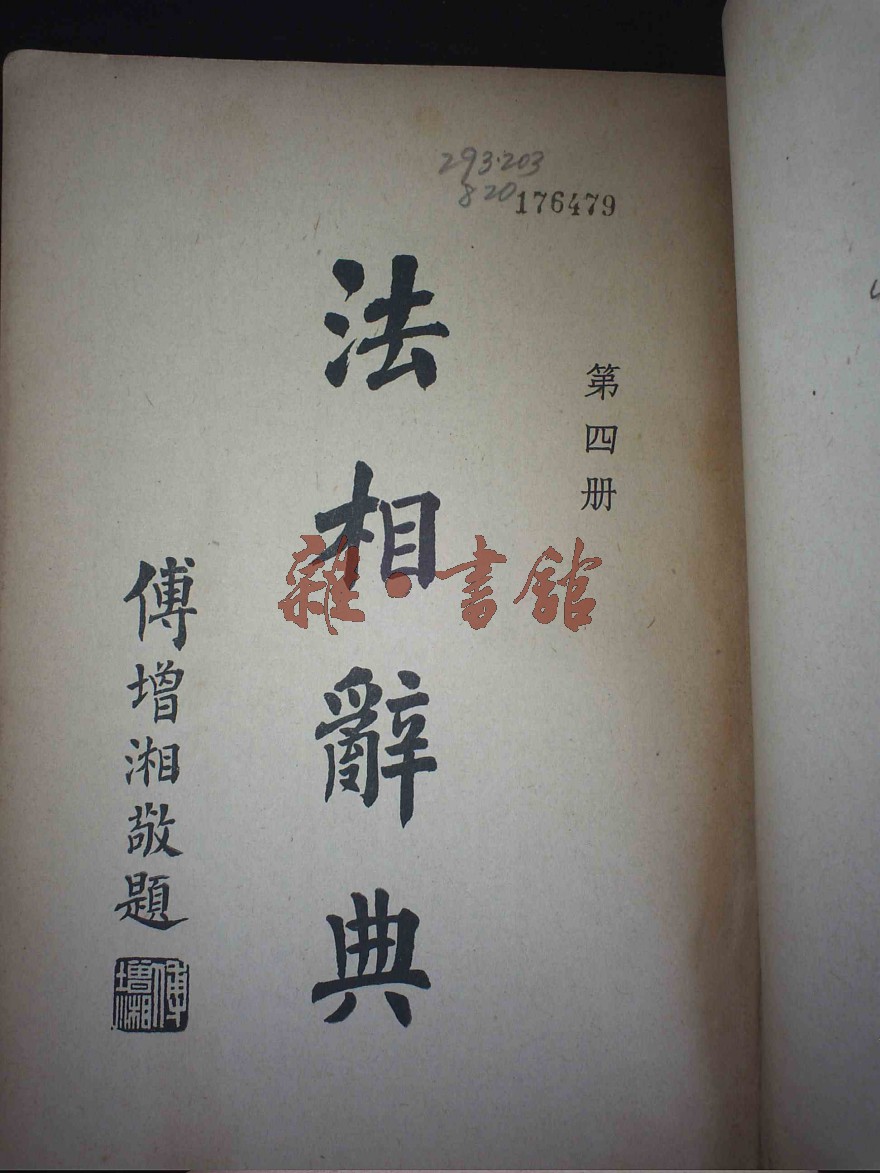 293·203
820 176479
第四册
法相辭典
傅增湘敬題
傅增湘
雜·書館